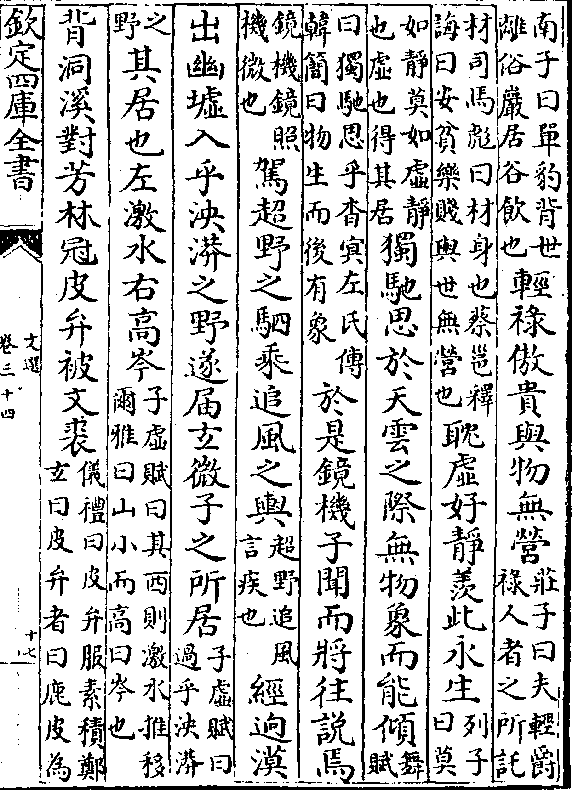 南子曰單豹背世
離俗巖居谷飲也輕祿傲貴與物無營莊子曰夫輕爵
祿人者之所託
材司馬彪曰材身也蔡邕釋
誨曰安貧樂賤與世無營也耽虛好靜羨此永生列子
曰莫
如靜莫如虛靜
也虛也得其居獨馳思於天雲之際無物象而能傾舞
賦
曰獨馳思乎杳冥左氏傳
韓簡曰物生而後有象於是鏡機子聞而將往說焉
鏡機鏡照
機微也駕超野之駟乘追風之輿超野追風
言疾也經迥漠
出幽墟入乎泱漭之野遂届𤣥微子之所居子虛賦曰
過乎泱漭
之
野其居也左激水右高岑子虛賦曰其西則激水推移
爾雅曰山小而高曰岑也
背洞溪對芳林冠皮弁被文裘儀禮曰皮弁服素積鄭
𤣥曰皮弁者曰鹿皮為
欽定四庫全書
文選
卷三十四
十七